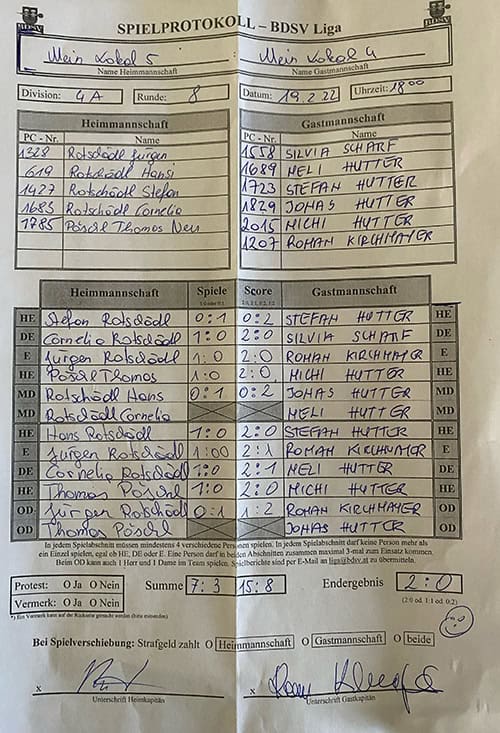 SPIELPROTOKOLL – BDSV Liga
Mein Lokal 5 Mein Lokal 4
Name Heimmannschaft Name Gastmannschaft
Division: 4A Runde: 8 Datum: 19.2.22 Uhrzeit: 18 00
Heimmannschaft Gastmannschaft
PC - Nr. Name PC - Nr. Name
1328 Rotschädl Jürgen 1558 SILVIA SCHARF
619 Rotschädl Hansi 1689 MELI HUTTER
1427 Rotschädl Stefan 1723 STEFAN HUTTER
1683 Rotschädl Cornelia 1829 JONAS HUTTER
1785 Pöschl Thomas Neu 2015 MICHI HUTTER
1207 ROMAN KIRCHMAYER
Heimmannschaft Spiele Score Gastmannschaft
HE Stefan Rotschädl 0:1 0:2 STEFAN HUTTER HE
DE Cornelia Rotschädl 1:0 2:0 SILVIA SCHARF DE
E Jürgen Rotschädl 1:0 2:0 ROMAN KIRCHMAYER E
HE Pöschl Thomas 1:0 2:0 MICHI HUTTER HE
MD Rotschädl Hans 0:1 0:2 JONAS HUTTER MD
MD Rotschädl Cornelia MELI HUTTER MD
HE Hans Rotschädl 1:0 2:0 STEFAN HUTTER HE
E Jürgen Rotschädl 1:00 2:1 ROMAN KIRCHMAYER E
DE Cornelia Rotschädl 1:0 2:1 MELI HUTTER DE
HE Thomas Pöschl 1:0 2:0 MICHI HUTTER HE
OD Jürgen Rotschädl 0:1 1:2 ROMAN KIRCHMAYER OD
OD Thomas Pöschl JONAS HUTTER OD
In jedem Spielabschnitt müssen mindestens 4 verschiedene Personen spielen. In jedem Spielabschnitt darf keine Person mehr als
ein Einzel spielen, egal ob HE, DE oder E. Eine Person darf in beiden Abschnitten zusammen maximal 3-mal zum Einsatz kommen.
Beim OD kann auch 1 Herr und 1 Dame im Team spielen. Spielberichte sind per E-Mail an liga@bdsv.at zu übermitteln.
Protest: O Ja O Nein Summe 7:3 15:8 Endergebnis 2:0
Vermerk: O Ja O Nein (2:0 od. 1:1 od. 0:2)
*) Ein Vermerk kann auf der Rückseite gemacht werden (bitte einsenden)
Bei Spielverschiebung: Strafgeld zahlt O Heimmannschaft O Gastmannschaft O beide
x x
Unterschrift Heimkapitän Unterschrift Gastkapitän